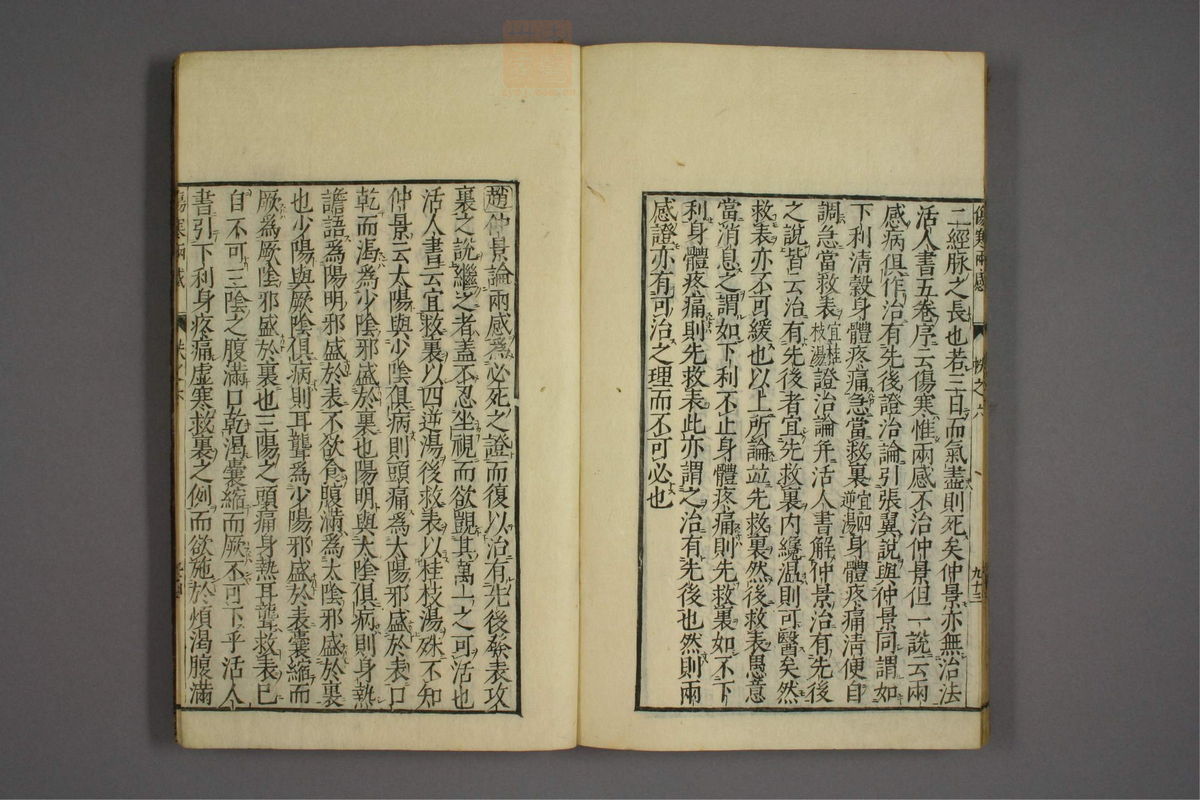 二經脉之長也若三日而氣盡則死矣仲景亦無治法
活人書五卷序云傷寒惟兩感不治仲景但一說云兩
感病俱作治有先後證治論引張翼說與仲景同謂如
下利清穀身體疼痛急當救裏宜四逆湯身體疼痛清便自
調急當救表宜桂枝湯證治論并活人書解仲景治有先後
之說皆云治有先後者宜先救裏內纔温則可醫矣然
救表亦不可緩也以上所論並先救裏然後救表愚意
當消息之謂如下利不止身體疼痛則先救裏如不下
利身體疼痛則先救表此亦謂之治有先後也然則兩
感證亦有可治之理而不可必也
趙仲景論兩感爲必死之證而復以治有先後發表攻
裏之說繼之者蓋不忍坐視而欲覬其萬一之可活也
活人書云宜救裏以四逆湯後救表以桂枝湯殊不知
仲景云太陽與少陰俱病則頭痛爲太陽邪盛於表口
乾而渴爲少陰邪盛於裏也陽明與太陰俱病則身熱
譫語爲陽明邪盛於表不欲食腹滿爲太陰邪盛於裏
也少陽與厥陰俱病則耳聾爲少陽邪盛於表囊縮而
厥爲厥陰邪盛於裏也三陽之頭痛身熱耳聾救表已
自不可三陰之腹滿口乾渴囊縮而厥不可下乎活人
書引下利身疼痛虛寒救裏之例而欲施於煩渴腹滿
傷寒兩感